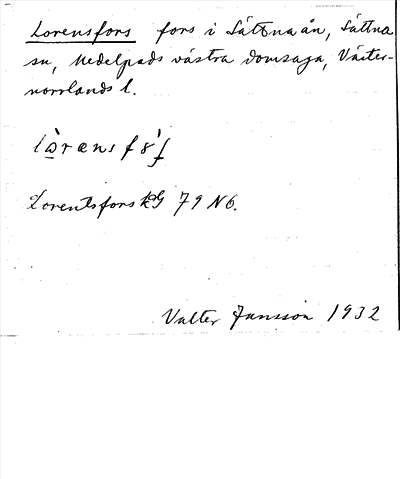 Lorensfors fors i Sättnaån, Sättna
sn, Medelpads västra domsaga, Väster-
norrlands l.
Lorentsfors kG 79 N6.
Valter Jansson 1932